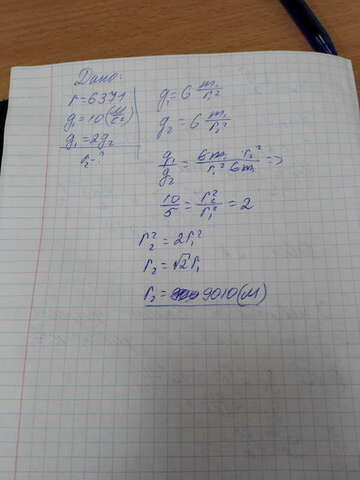 Дано:
r=6371
g₁=10(м/с²)
g₁=2g₂
r₂-?
g₁=G m₁/r₁²
g₂=G m₁/r₁²
g₁/g₂=Gm₁ r₂²/r₁² Gm₁ =>
10/5=r₂²/r₁²=2
r₂²=2r₁²
r₂=√2r₁
r₂=9010(м)